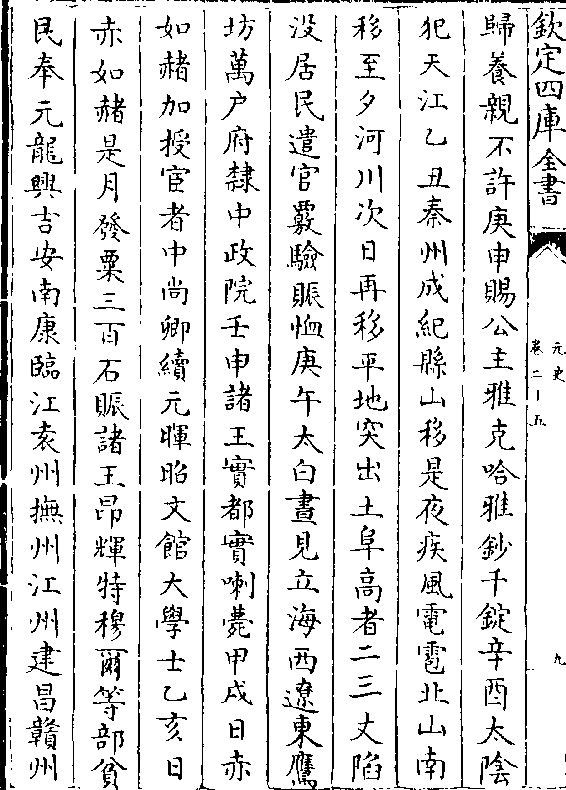 欽定四庫全書
元史
卷二十五
九
歸養親不許庚申賜公主雅克哈雅鈔千錠辛酉太陰
犯天江乙丑秦州成紀縣山移是夜疾風電雹北山南
移至夕河川次日再移平地突出土阜高者二三丈陷
没居民遣官覈驗賑恤庚午太白晝見立海西遼東鷹
坊萬户府隸中政院壬申諸王實都實喇薨甲戌日赤
如赭加授宦者中尚卿續元暉昭文館大學士乙亥日
赤如赭是月發粟三百石賑諸王昂輝特穆爾等部貧
民奉元龍興吉安南康臨江袁州撫州江州建昌贛州